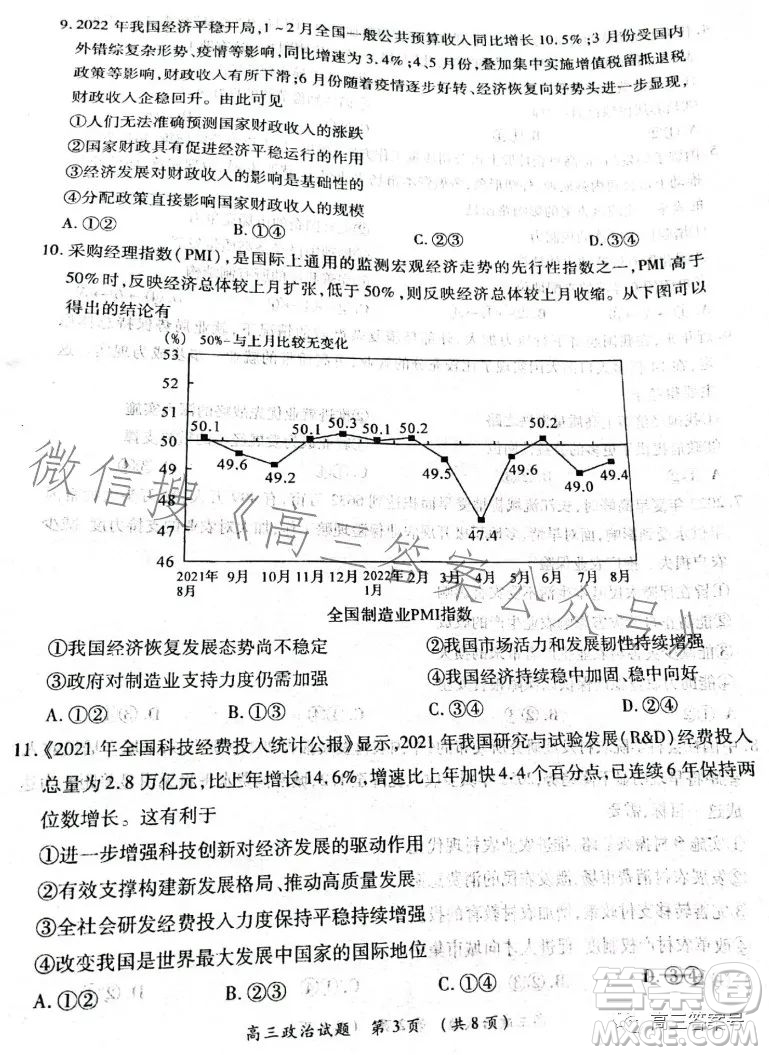 9. 2022 年我国经济平稳开局,1～2月全国一般公共预算收入同比增长 10.5%;3月份受国内
外错综复杂形势、疫情等影响,同比增速为 3.4%;4、5月份,叠加集中实施增值税留抵退税
政策等影响,财政收入有所下滑;6月份随着疫情逐步好转、经济恢复向好势头进一步显现,
财政收入企稳回升。由此可见
①人们无法准确预测国家财政收入的涨跌
②国家财政具有促进经济平稳运行的作用
③经济发展对财政收入的影响是基础性的
④分配政策直接影响国家财政收入的规模
A.①② B.①④ C.②③ D.③④
10. 采购经理指数(PMI),是国际上通用的监测宏观经济走势的先行性指数之一,PMI 高于
50%时,反映经济总体较上月扩张,低于50%,则反映经济总体较上月收缩。从下图可以
得出的结论有
(%) 50%=与上月比较无变化
53
52
51
50
49
48
47
46
50.1 49.6 49.2 50.1 50.3 50.1 50.2 49.5 47.4 49.6 50.2 49.0 49.4
2021年8月 9月 10月 11月 12月 2022年1月 2月 3月 4月 5月 6月 7月 8月
全国制造业PMI指数
①我国经济恢复发展态势尚不稳定 ②我国市场活力和发展韧性持续增强
③政府对制造业支持力度仍需加强 ④我国经济持续稳中加固、稳中向好
A.①② B.①③ C.②④ D.③④
11.《2021年全国科技经费投入统计公报》显示,2021年我国研究与试验发展(R&D)经费投入
总量为2.8万亿元,比上年增长14.6%,增速比上年加快4.4个百分点,已连续6年保持两
位数增长。这有利于
①进一步增强科技创新对经济发展的驱动作用
②有效支撑构建新发展格局、推动高质量发展
③全社会研发经费投入力度保持平稳持续增强
④改变我国是世界最大发展中国家的国际地位
A.①② B.②③ C.①④ D.③④
高三政治试题 第3页 (共8页)
微信搜《高三答案公众号》
高三答案号